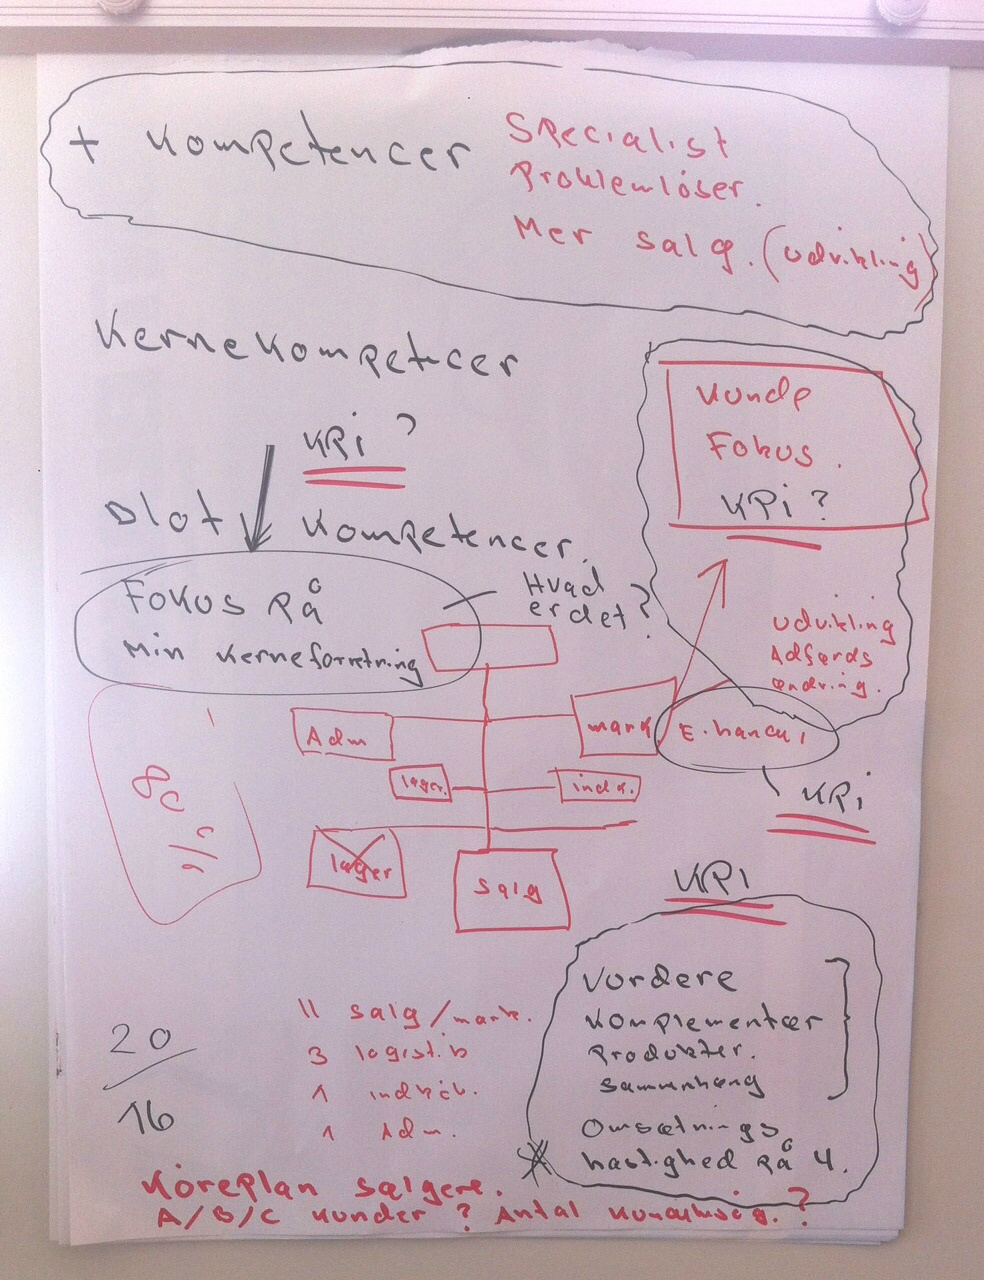 + Kompetencer
Specialist
Problemlöser.
Mer salg. (udvikling)
Kernekompetcer
KPi ?
Slot Kompetencer.
Kunde
Fokus.
KPi ?
Fokus på
min kerneforretning
Hvad
er det?
udvikling
Adfærds
ændring.
Adm
mark
E. handel
lager.
indk.
KPi
lager
Salg
80
KPI
Vurdere
Komplementær
Produkter.
sammenhæng
Omsætnings
hastighed på 4.
11 salg/mark.
3 logistik
1 indkøb.
1 Adm.
20
16
Köreplan sælgere.
A/B/C kunder ? Antal kundebesøg. ?